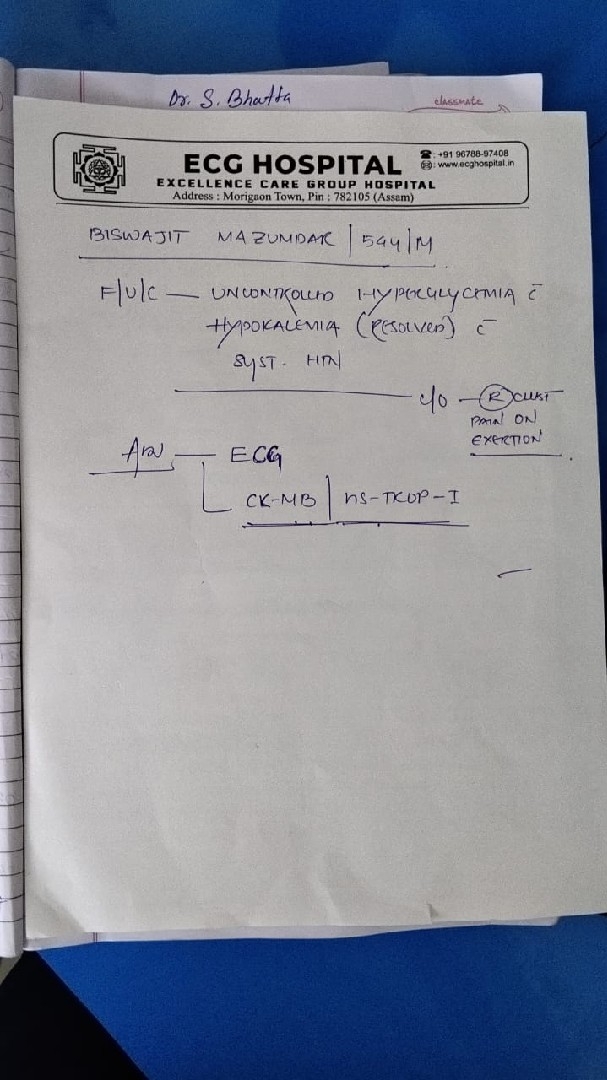 Dr. S. Bhatta
classmate
ECG HOSPITAL
EXCELLENCE CARE GROUP HOSPITAL
Address : Morigaon Town, Pin : 782105 (Assam)
☎: +91 96788-97408
: www.ecghospital.in
BISWAJIT MAZUMDAR | 54Y/M
F/U/C — UNCONTROLLED HYPERGLYCEMIA c̄
HYPOKALEMIA (RESOLVED) c̄
SYST. HTN
c/o — (R) CHEST
PAIN ON
EXERTION
Adv — ECG
CK-MB | HS-TROP-I